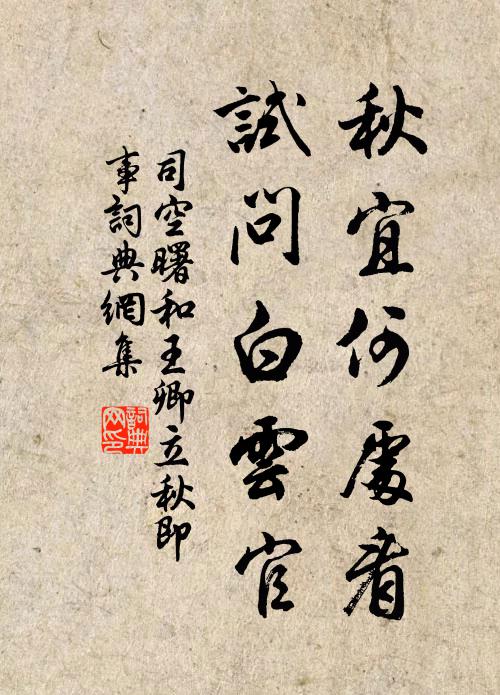 秋宜何處看
試問白雲官
司空曙和王卿立秋即
事詞典網集
詞典网印